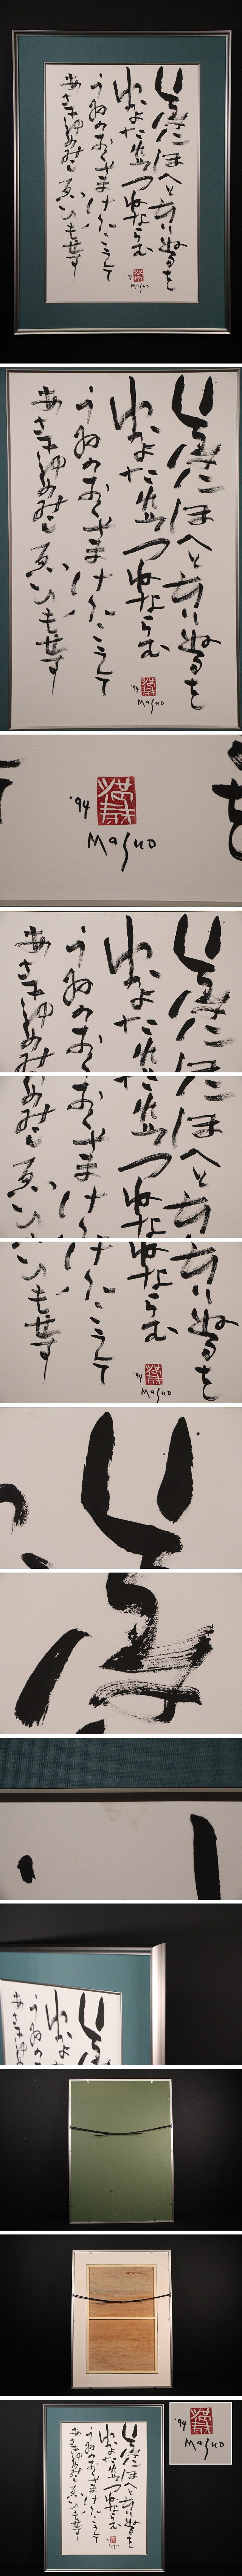 いろはにほへとちりぬるを
わかよたれそつねならむ
うゐのおくやまけふこえて
あさきゆめみしゑひもせす
'94 満寿
Masuo